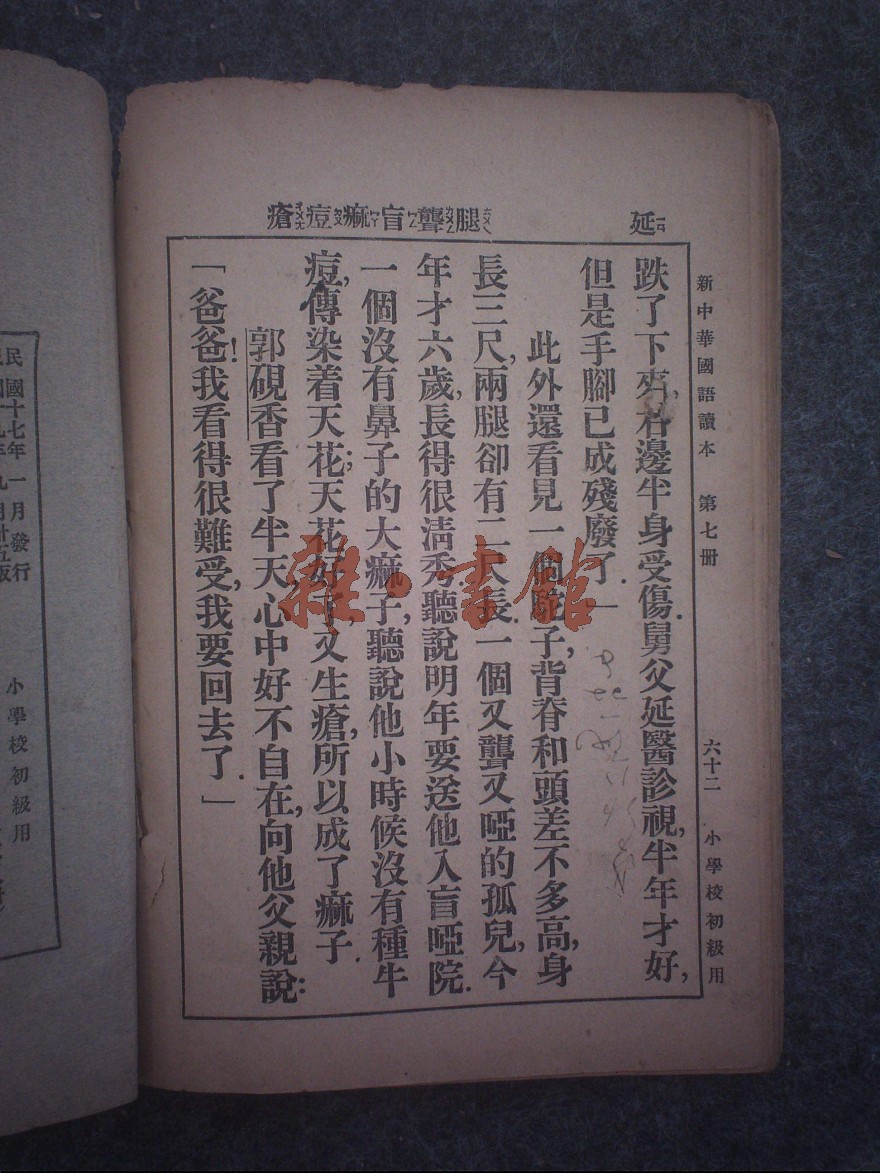 新中華國語讀本 第七冊 六十二 小學校初級用
延 腿聾盲痲痘瘡
跌了下來,右邊半身受傷.舅父延醫診視,半年才好,
但是手腳已成殘廢了.」
此外還看見一個駝子,背脊和頭差不多高,身
長三尺,兩腿卻有二尺長.一個又聾又啞的孤兒,今
年才六歲,長得很清秀,聽說明年要送他入盲啞院.
一個沒有鼻子的大痲子,聽說他小時候沒有種牛
痘,傳染着天花;天花好了,又生瘡,所以成了痲子.
郭硯香看了半天,心中好不自在,向他父親說:
「爸爸!我看得很難受,我要回去了.」
雜·書館
民國十七年一月發行
小學校初級用